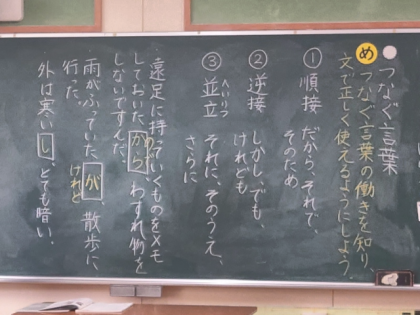 つなぐ言葉
め つなぐ言葉の働きを知り、
文で正しく使えるようにしよう。
① 順接 だから、それで、
そのため
② 逆接 しかし、でも、
けれども
③ 並立 それに、そのうえ、
へいりつ
さらに
遠足に持っていくものをメモ
しておいたから、わすれ物を
しないですんだ。
雨がふっていたが、散歩に
けれど
行った。
外は寒いし、とても暗い。